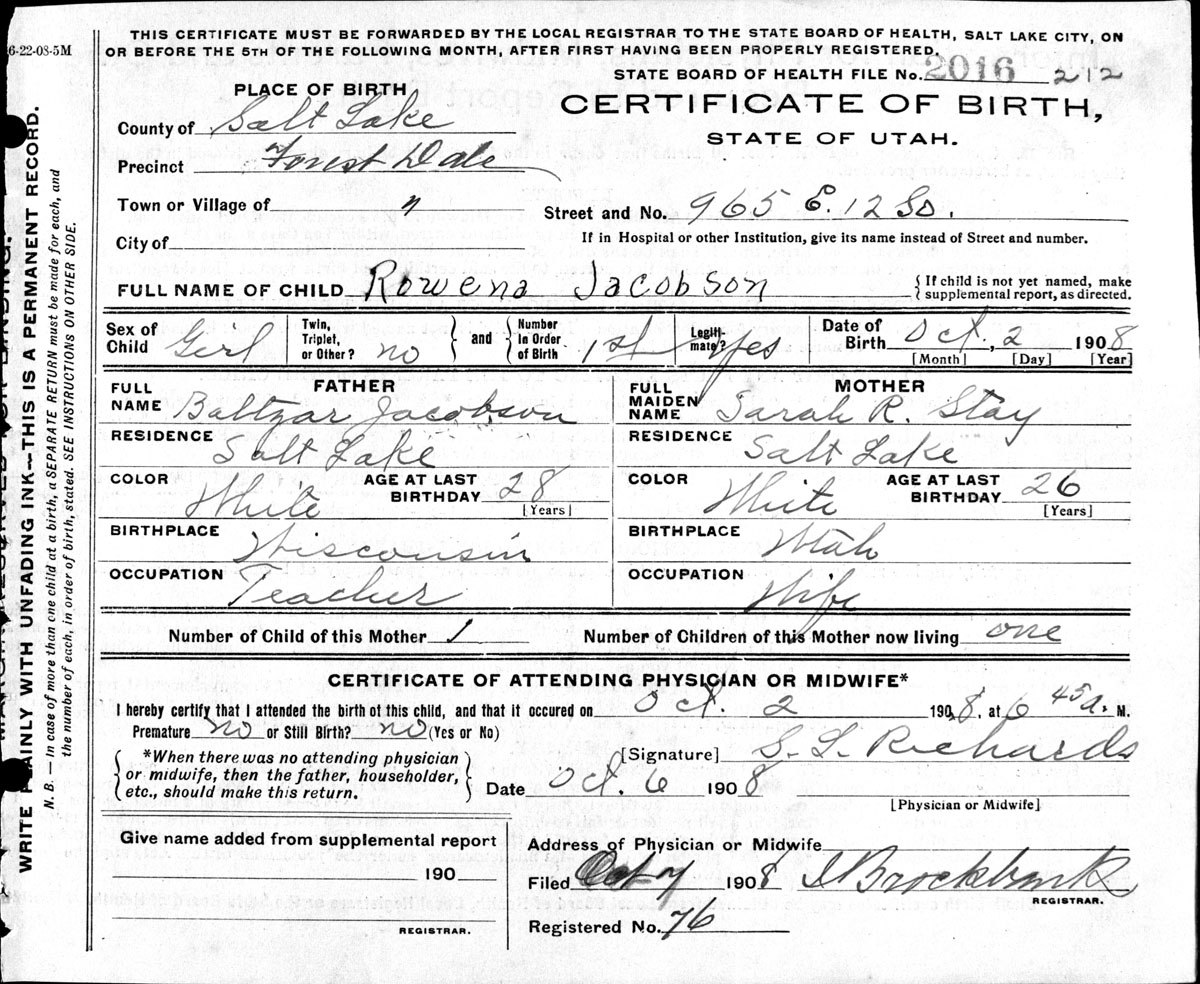 6-22-08-5M
THIS CERTIFICATE MUST BE FORWARDED BY THE LOCAL REGISTRAR TO THE STATE BOARD OF HEALTH, SALT LAKE CITY, ON
OR BEFORE THE 5TH OF THE FOLLOWING MONTH, AFTER FIRST HAVING BEEN PROPERLY REGISTERED.
STATE BOARD OF HEALTH FILE No. 2016 212
PLACE OF BIRTH
CERTIFICATE OF BIRTH,
STATE OF UTAH.
County of Salt Lake
Precinct Forest Dale
Town or Village of "
Street and No. 965 E. 12 So.
City of
If in Hospital or other Institution, give its name instead of Street and number.
FULL NAME OF CHILD Rowena Jacobson
{ If child is not yet named, make
supplemental report, as directed.
Sex of Child Girl
Twin, Triplet, or Other? no
} and {
Number in Order of Birth 1st
Legiti-mate? Yes
Date of Birth Oct., 2 1908
[Month] [Day] [Year]
FATHER
FULL NAME Baltzar Jacobson
RESIDENCE Salt Lake
COLOR White
AGE AT LAST BIRTHDAY 28
[Years]
BIRTHPLACE Wisconsin
OCCUPATION Teacher
MOTHER
FULL MAIDEN NAME Sarah R. Stay
RESIDENCE Salt Lake
COLOR White
AGE AT LAST BIRTHDAY 26
[Years]
BIRTHPLACE Utah
OCCUPATION Wife
Number of Child of this Mother 1
Number of Children of this Mother now living one
CERTIFICATE OF ATTENDING PHYSICIAN OR MIDWIFE*
I hereby certify that I attended the birth of this child, and that it occured on Oct. 2 1908, at 6 45 a. M.
Premature no or Still Birth? no (Yes or No)
{ *When there was no attending physician
or midwife, then the father, householder,
etc., should make this return. }
[Signature] S. L. Richards
Date Oct. 6 1908
[Physician or Midwife]
Give name added from supplemental report
190
REGISTRAR.
Address of Physician or Midwife
Filed Oct 7 1908 I Brockbank
REGISTRAR.
Registered No. 76
WRITE PLAINLY WITH UNFADING INK—THIS IS A PERMANENT RECORD.
N. B. — In case of more than one child at a birth, a SEPARATE RETURN must be made for each, and
the number of each, in order of birth, stated. SEE INSTRUCTIONS ON OTHER SIDE.